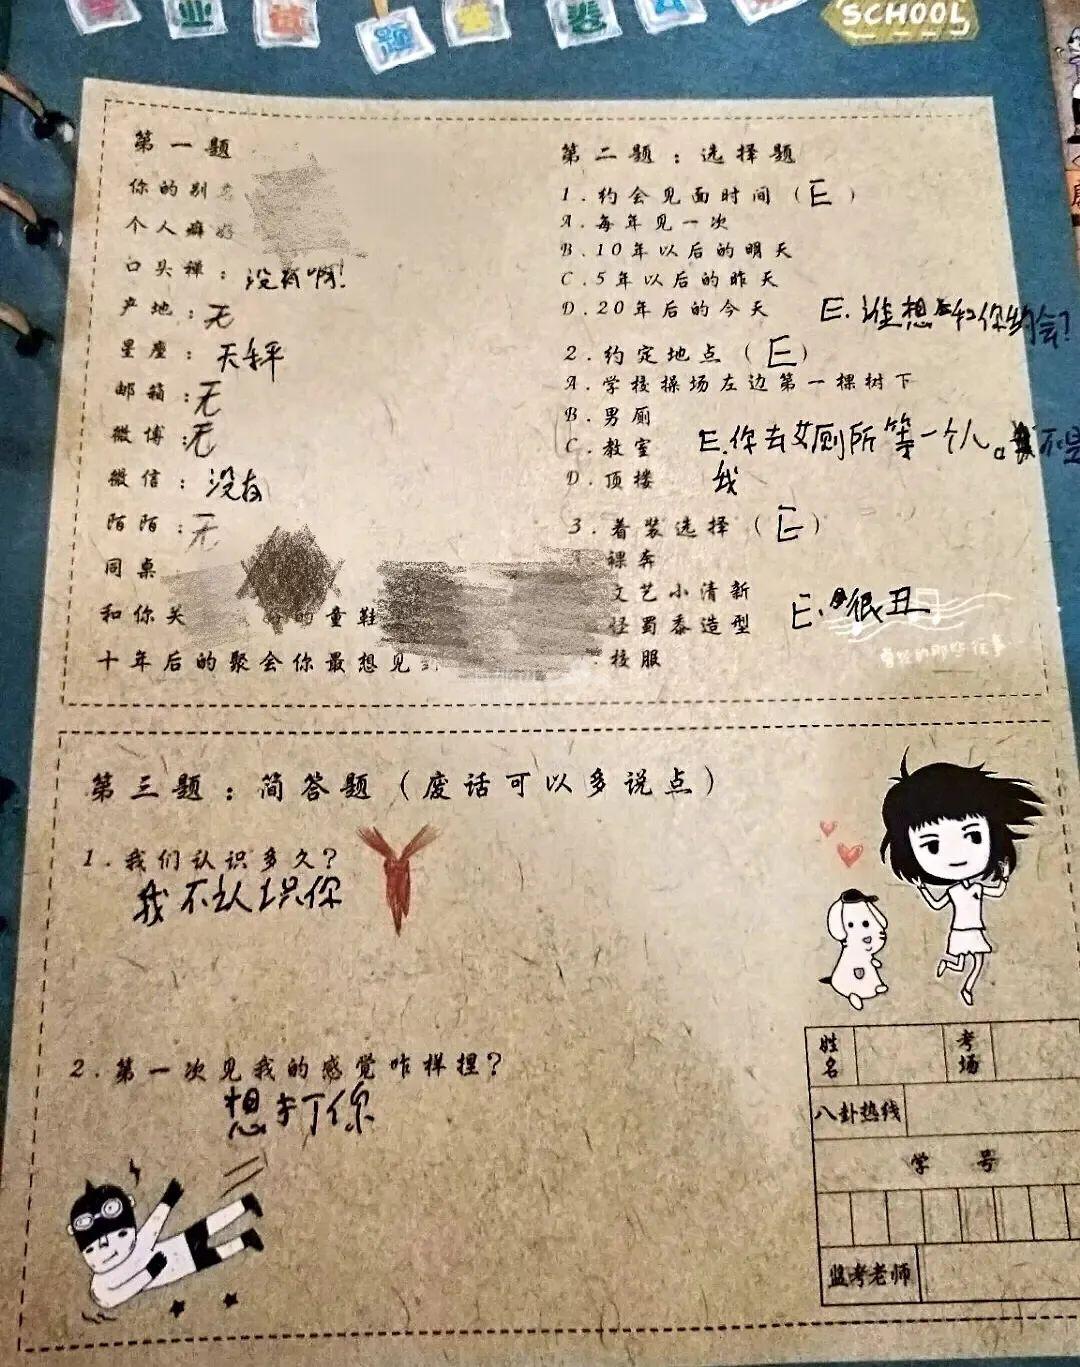 业 试 题 答 卷
SCHOOL
第一题
你的别名
个人癖好
口头禅：没有啊！
产地：无
星座：天秤
邮箱：无
微博：无
微信：没有
陌陌：无
同桌
和你关 的童鞋
十年后的聚会你最想见到
第二题：选择题
1.约会见面时间（E）
A.每年见一次
B.10年以后的明天
C.5年以后的昨天
D.20年后的今天
E.谁想和你约会?
2.约定地点（E）
A.学校操场左边第一棵树下
B.男厕
C.教室
E.你去女厕所等一个人。不是
D.顶楼
我
3.着装选择（E）
裸奔
文艺小清新
怪蜀黍造型
E.很丑
校服
曾经的那些往事
第三题：简答题（废话可以多说点）
1.我们认识多久?
我不认识你
2.第一次见我的感觉咋样捏?
想打你
姓名
考场
八卦热线
学号
监考老师